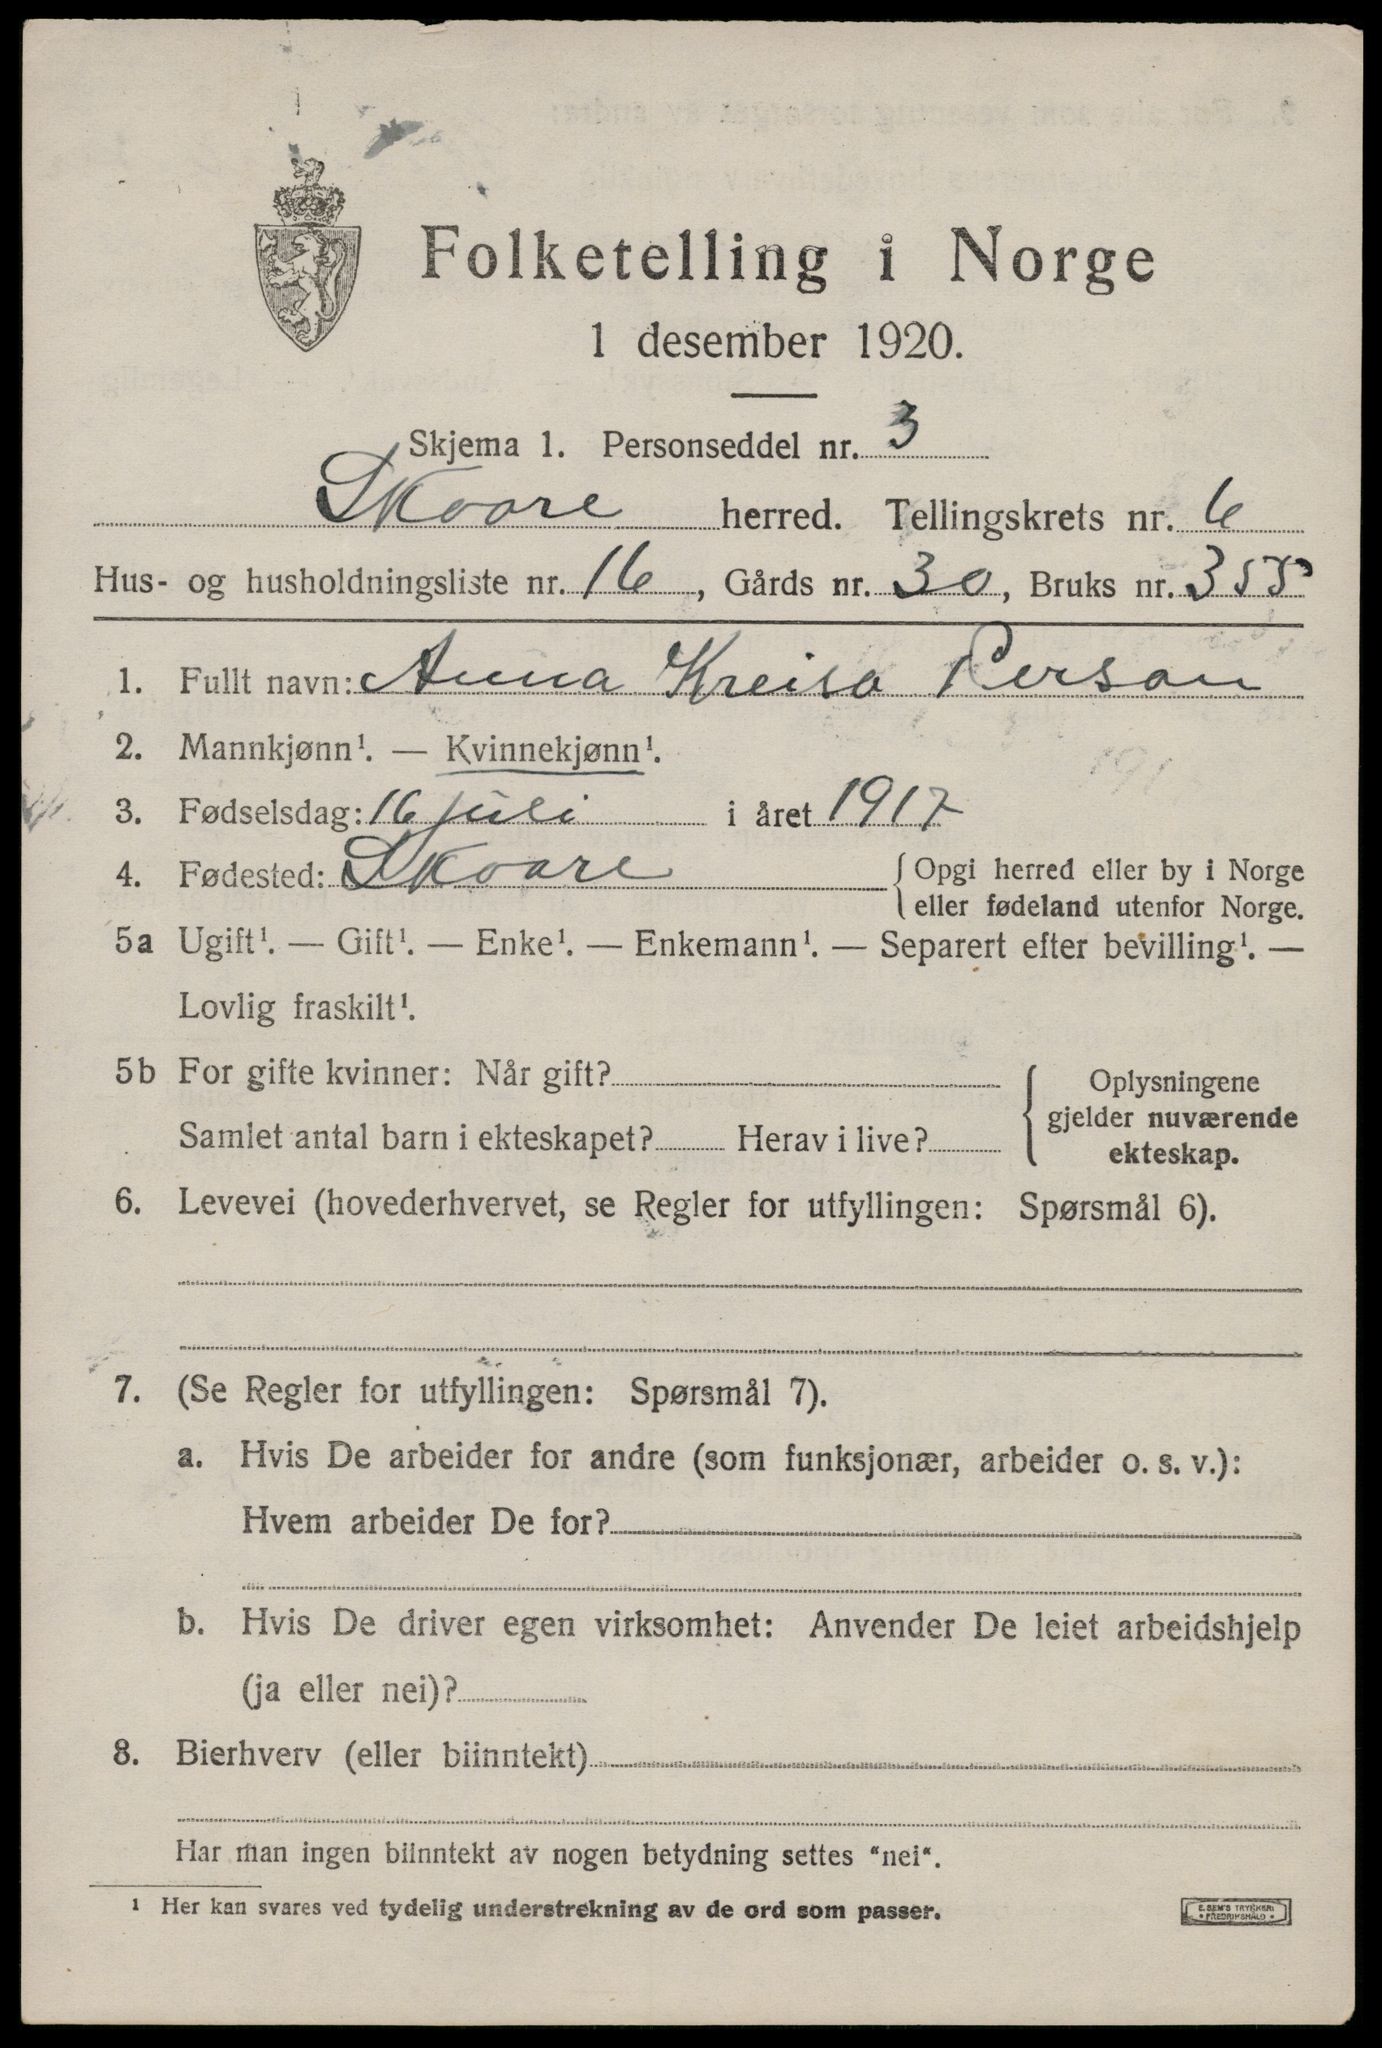 Folketelling i Norge
1 desember 1920.
Skjema 1. Personseddel nr. 3
Skaare herred. Tellingskrets nr. 6
Hus- og husholdningsliste nr. 16, Gårds nr. 30, Bruks nr. 355
1. Fullt navn: Anna Kreisa Person
2. Mannkjønn¹. — Kvinnekjønn¹.
3. Fødselsdag: 16 juli i året 1917
4. Fødested: Skaare { Opgi herred eller by i Norge
eller fødeland utenfor Norge.
5a Ugift¹. — Gift¹. — Enke¹. — Enkemann¹. — Separert efter bevilling¹. —
Lovlig fraskilt¹.
5b For gifte kvinner: Når gift? { Oplysningene
gjelder nuværende
Samlet antal barn i ekteskapet? Herav i live?
ekteskap.
6. Levevei (hovederhvervet, se Regler for utfyllingen: Spørsmål 6).
7. (Se Regler for utfyllingen: Spørsmål 7).
a. Hvis De arbeider for andre (som funksjonær, arbeider o. s. v.):
Hvem arbeider De for?
b. Hvis De driver egen virksomhet: Anvender De leiet arbeidshjelp
(ja eller nei)?
8. Bierhverv (eller biinntekt)
Har man ingen biinntekt av nogen betydning settes "nei".
¹ Her kan svares ved tydelig understrekning av de ord som passer.
E. SEM'S TRYKKERI
• FREDRIKSHALD •